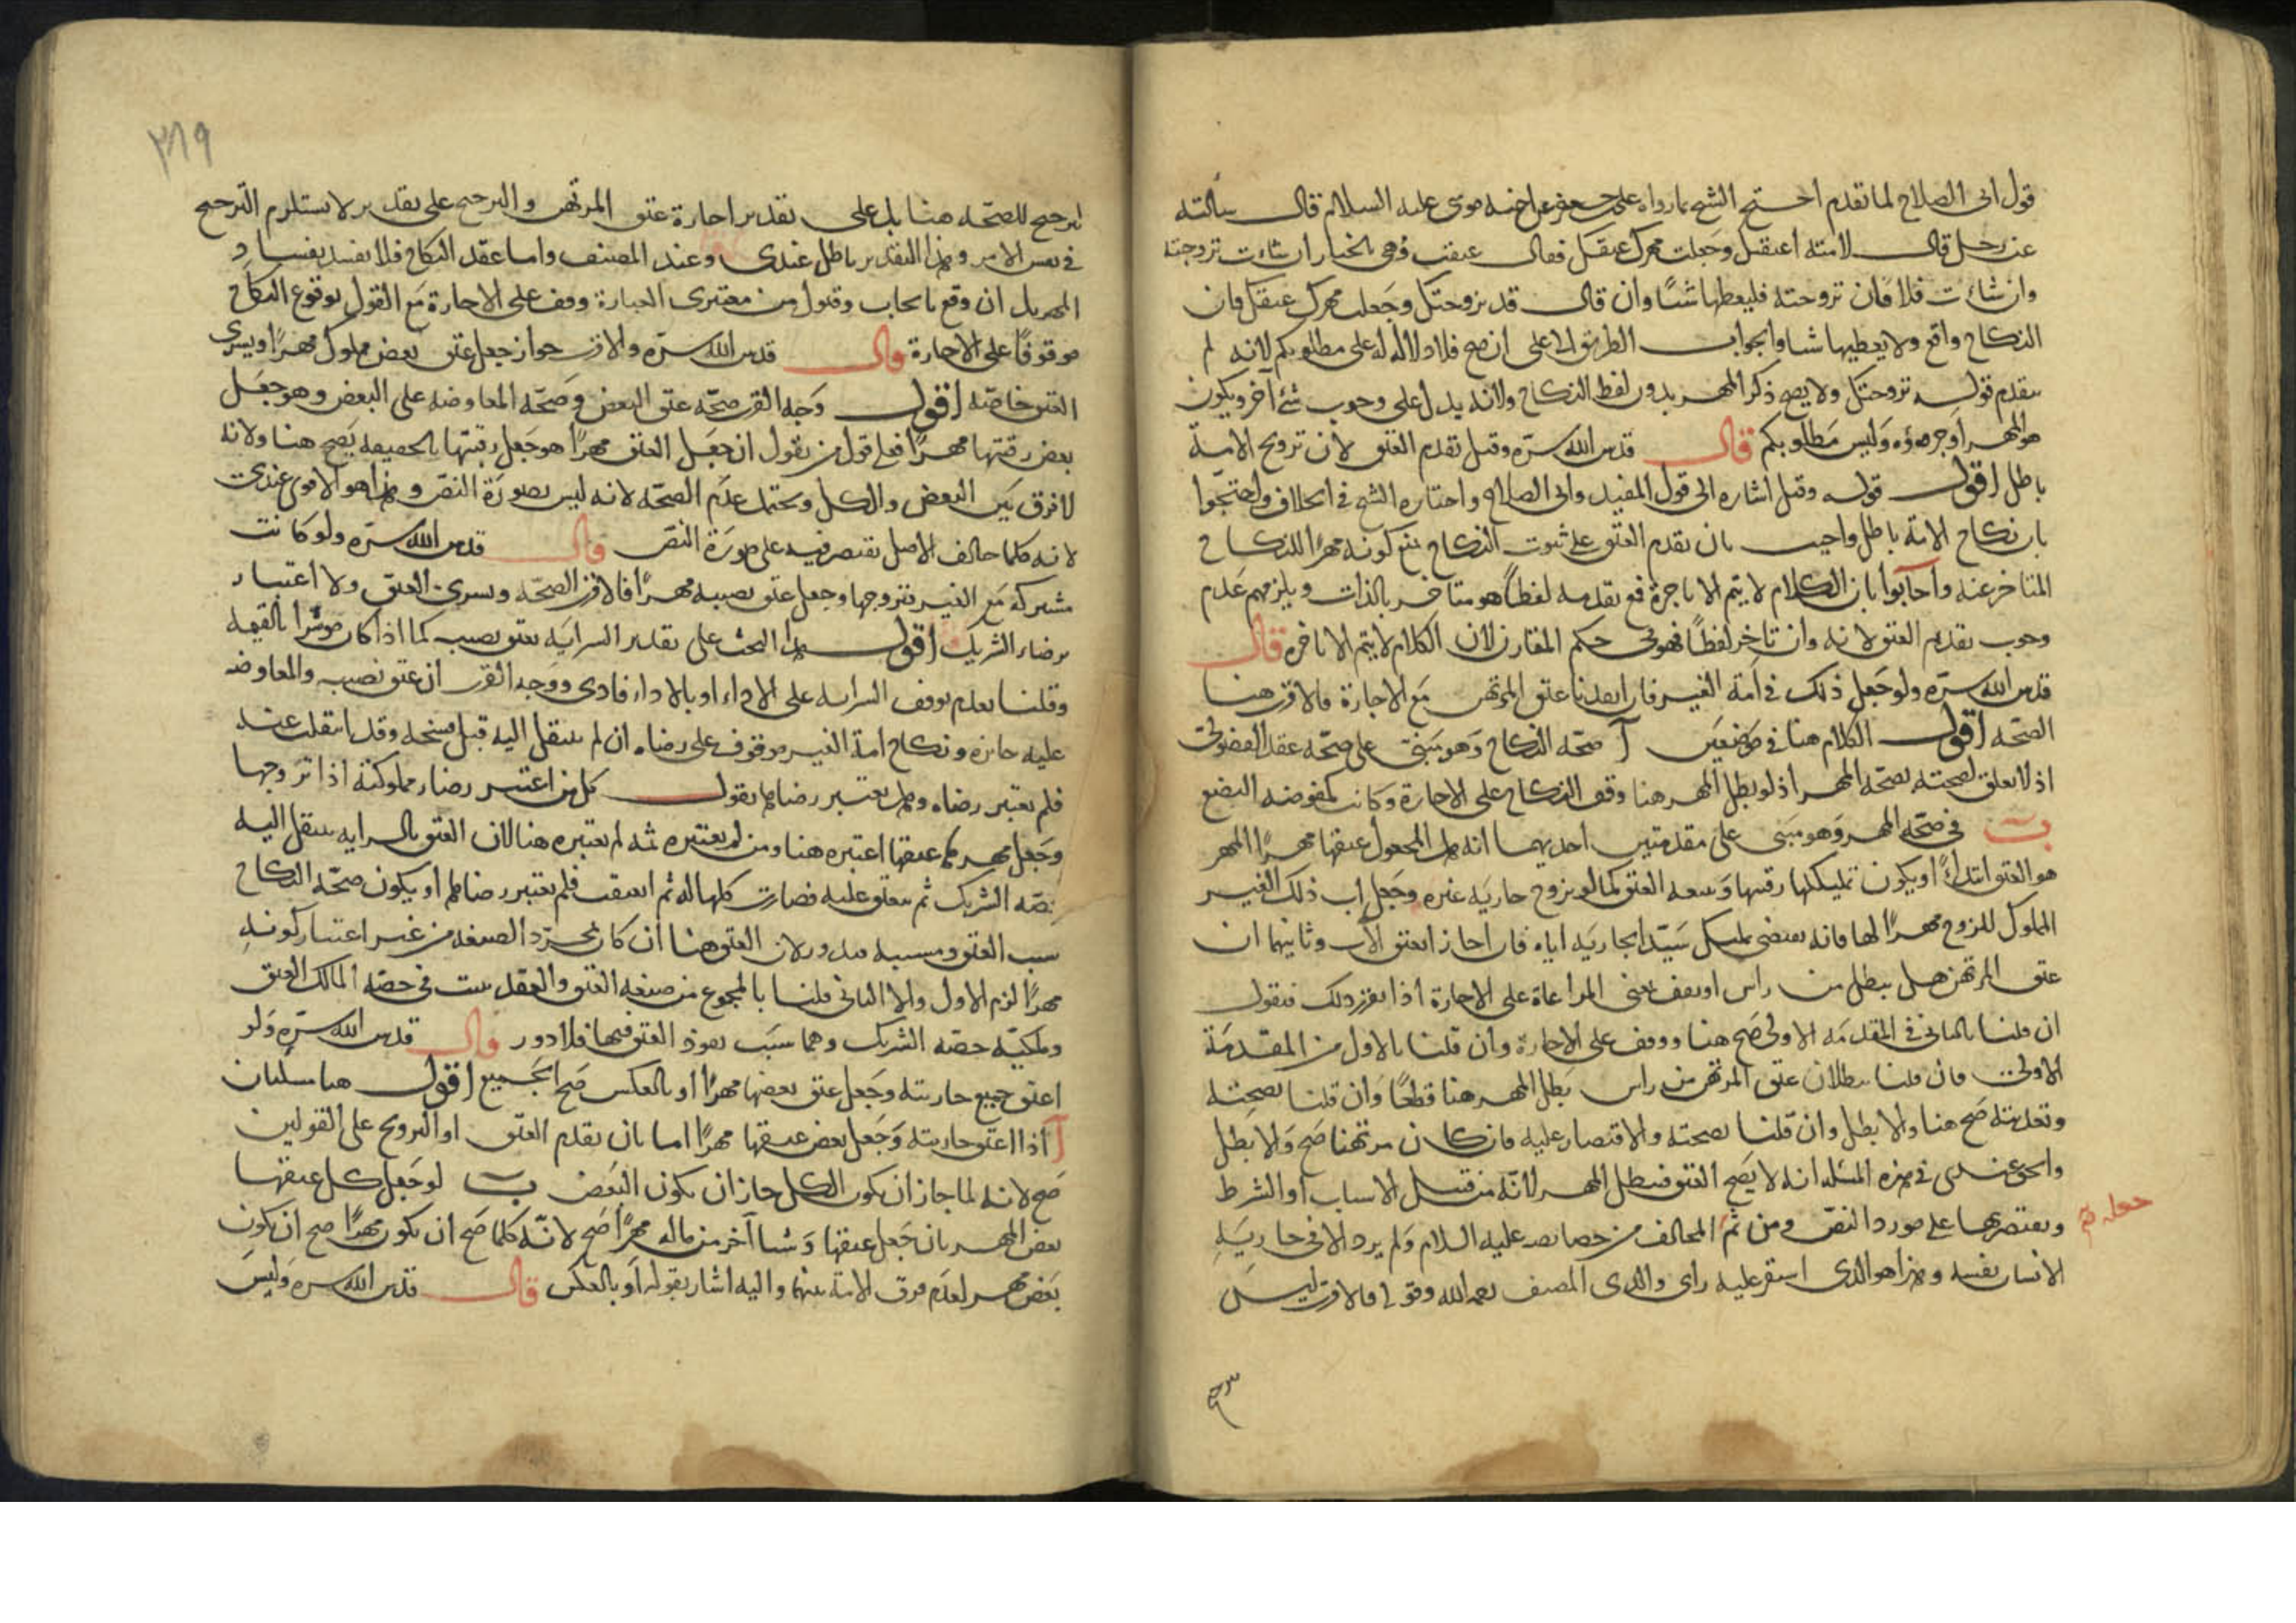 قول ابى الصلاح لما تقدم احتج الشيخ بما رواه على بن جعفر عن اخيه موسى عليه السلام قال سالته
عن رجل قال لامته اعتقتك وجعلت مهرك عتقك فقال عتقت وهى بالخيار ان شاءت تزوجته
وان شاءت فلا فان تزوجته فليعطها شيئا وان قال قد تزوجتك وجعلت مهرك عتقك فان
النكاح واقع ولا يعطيها شيا والجواب الطريق الى على ان صح فلا دلالة له على مطلوبكم لانه لم
يتقدم قوله تزوجتك ولا يصح ذكر المهر بدون لفظ النكاح ولانه يدل على وجوب شئ آخر ويكون
هو المهر او جزءه وليس مطلوبكم قال قدس الله سره وقيل تقدم العتق لان تزويج الامة
باطل اقول قوله وقيل اشاره الى قول المفيد وابى الصلاح واختاره الشيخ فى الخلاف واحتجوا
بان نكاح الامة باطل واجيب بان تقدم العتق على ثبوت النكاح يمنع كونه مهرا للنكاح
المتاخر عنه واجابوا بان الكلام لا يتم الا باخره فمع تقدمه لفظا هو متاخر بالذات ويلزمهم عدم
وجوب تقديم العتق لانه وان تاخر لفظا فهو فى حكم المقارن لان الكلام لا يتم الا باخره قال
قدس الله سره ولو جعل ذلك فى امة الغير فان انفذنا عتق المرتهن مع الاجازة فالاقرب هنا
الصحة اقول الكلام هنا فى موضعين آ صحة النكاح وهو مبنى على صحة عقد الفضولى
اذ لا تعلق لصحته بصحة المهر اذ لو بطل المهر هنا وقف النكاح على الاجازة وكانت كمفوضة البضع
ب فى صحة المهر وهو مبنى على مقدمتين احديهما انه هل المجعول عتقها مهرا المهر
هو العتق ابتداءً او يكون تمليكها رقبتها وتبعه العتق كما لو تزوج جارية غيره وجعل اب ذلك الغير
المملوك للزوج مهرا لها فانه يقتضى تمليك سيد الجارية اياه فان اجاز انعتق الاب وثانيهما ان
عتق المرتهن هل يبطل من راس او يقف بمعنى المراعاة على الاجازة اذا تقرر ذلك فنقول
ان قلنا بالثانى فى المقدمة الاولى صح هنا ووقف على الاجازة وان قلنا بالاول من المقدمة
الاولى فان قلنا ببطلان عتق المرتهن من راس بطل المهر هنا قطعا وان قلنا بصحته
وتعديته صح هنا والا بطل وان قلنا بصحته والاقتصار عليه فان كان مرتهنا صح والا بطل
والحق عندى فى هذه المسئلة انه لا يصح العتق فيبطل المهر لانه من قبيل الاسباب او الشرط
ويقتصر بها على مورد النص ومن ثم المخالف من خصايصه عليه السلام ولم يرد الا فى جارية
الانسان نفسه وهذا هو الذى استقر عليه راى والدى المصنف رحمه الله وقوله فالاقرب ليس
٢٨٩
لترجيح للصحة هنا بل على تقدير اجازة عتق المرتهن والترجيح على تقدير لا يستلزم الترجيح
فى نفس الامر وهذا التقدير باطل عندى وعند المصنف واما عقد النكاح فلا يفسد بفساد
المهر بل ان وقع بايجاب وقبول من معتبرى العبارة وقف على الاجازة مع القول بوقوع النكاح
موقوفا على الاجازة قال قدس الله سره والاقرب جواز جعل عتق بعض مملوكه مهرا ويسرى
العتق خاصة اقول وجه القرب صحة عتق البعض وصحة المعاوضة على البعض وهو جعل
بعض رقبتها مهرا فعلى قول من يقول ان جعل العتق مهرا هو جعل رقبتها بالحقيقة يصح هنا ولانه
لا فرق بين البعض والكل ويحتمل عدم الصحة لانه ليس بصورة النص وهذا هو الاقوى عندى
لانه كلما خالف الاصل يقتصر فيه على صورة النص قال قدس الله سره ولو كانت
مشتركة مع الغير فتزوجها وجعل عتق نصيبه مهرا فالاقرب الصحة ويسرى العتق ولا اعتبار
برضاء الشريك اقول هذا البحث على تقدير السراية بعتق نصيبه كما اذا كان موسرا بالقيمة
وقلنا بعدم توقف السراية على الاداء او بالاداء فادى ووجه القرب ان عتق نصيبه والمعاوضة
عليه جائزة ونكاح امة الغير موقوف على رضاه ان لم ينتقل اليه قبل فسخه وقد انتقلت عنه
فلم يعتبر رضاه وهل يعتبر رضاها يقول كل من اعتبر رضاء مملوكته اذا تزوجها
وجعل مهرها عتقها اعتبره هنا ومن لم يعتبره ثمه لم يعتبره هنا لان العتق بالسراية ينتقل اليه
حصة الشريك ثم ينعتق عليه فصارت كلها له ثم انعتقت فلم يعتبر رضاها او يكون صحة النكاح
سبب العتق ومسببه فيدور لان العتق هنا ان كان بمجرد الصيغة من غير اعتبار كونه
مهرا لزم الاول والا الثانى قلنا بالمجموع من صيغة العتق والعقد يثبت فى حصة المالك العتق
وملكية حصة الشريك وهما سبب نفوذ العتق فيها فلا دور قال قدس الله سره ولو
اعتق جميع جاريته وجعل عتق بعضها مهرا او بالعكس صح الجميع اقول هنا مسئلتان
آ اذا اعتق جاريته وجعل بعض عتقها مهرا اما بان يقدم العتق او التزويج على القولين
صح لانه لما جاز ان يكون الكل جاز ان يكون البعض ب لو جعل كل عتقها
بعض المهر بان جعل عتقها وشيا آخر من ماله مهرا صح لانه كلما صح ان يكون مهرا صح ان يكون
بعض مهر لعدم فرق الامة بينهما واليه اشار بقوله او بالعكس قال قدس الله سره وليس